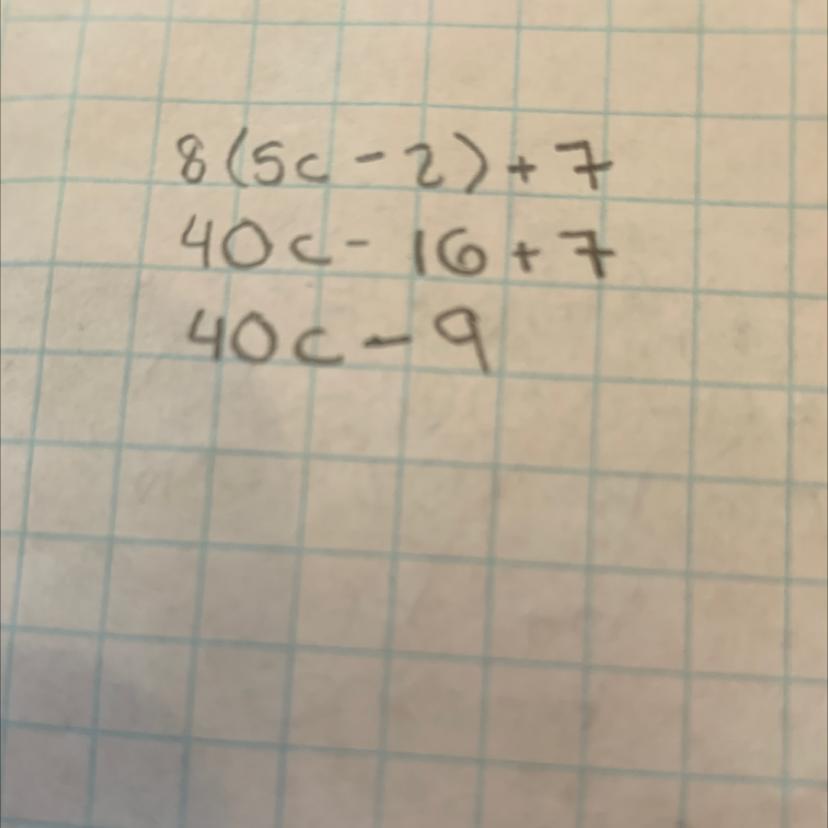 8(5c - 2) + 7
40c - 16 + 7
40c - 9